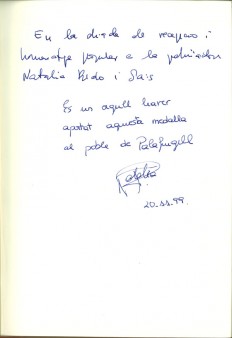 En la diada de reapreci i
homenatge popular a la patinadora
Natalia Bedo i Sais
És un orgull haver
aportat aquesta medalla
al poble de Palafrugell
Natalia
20.11.99.